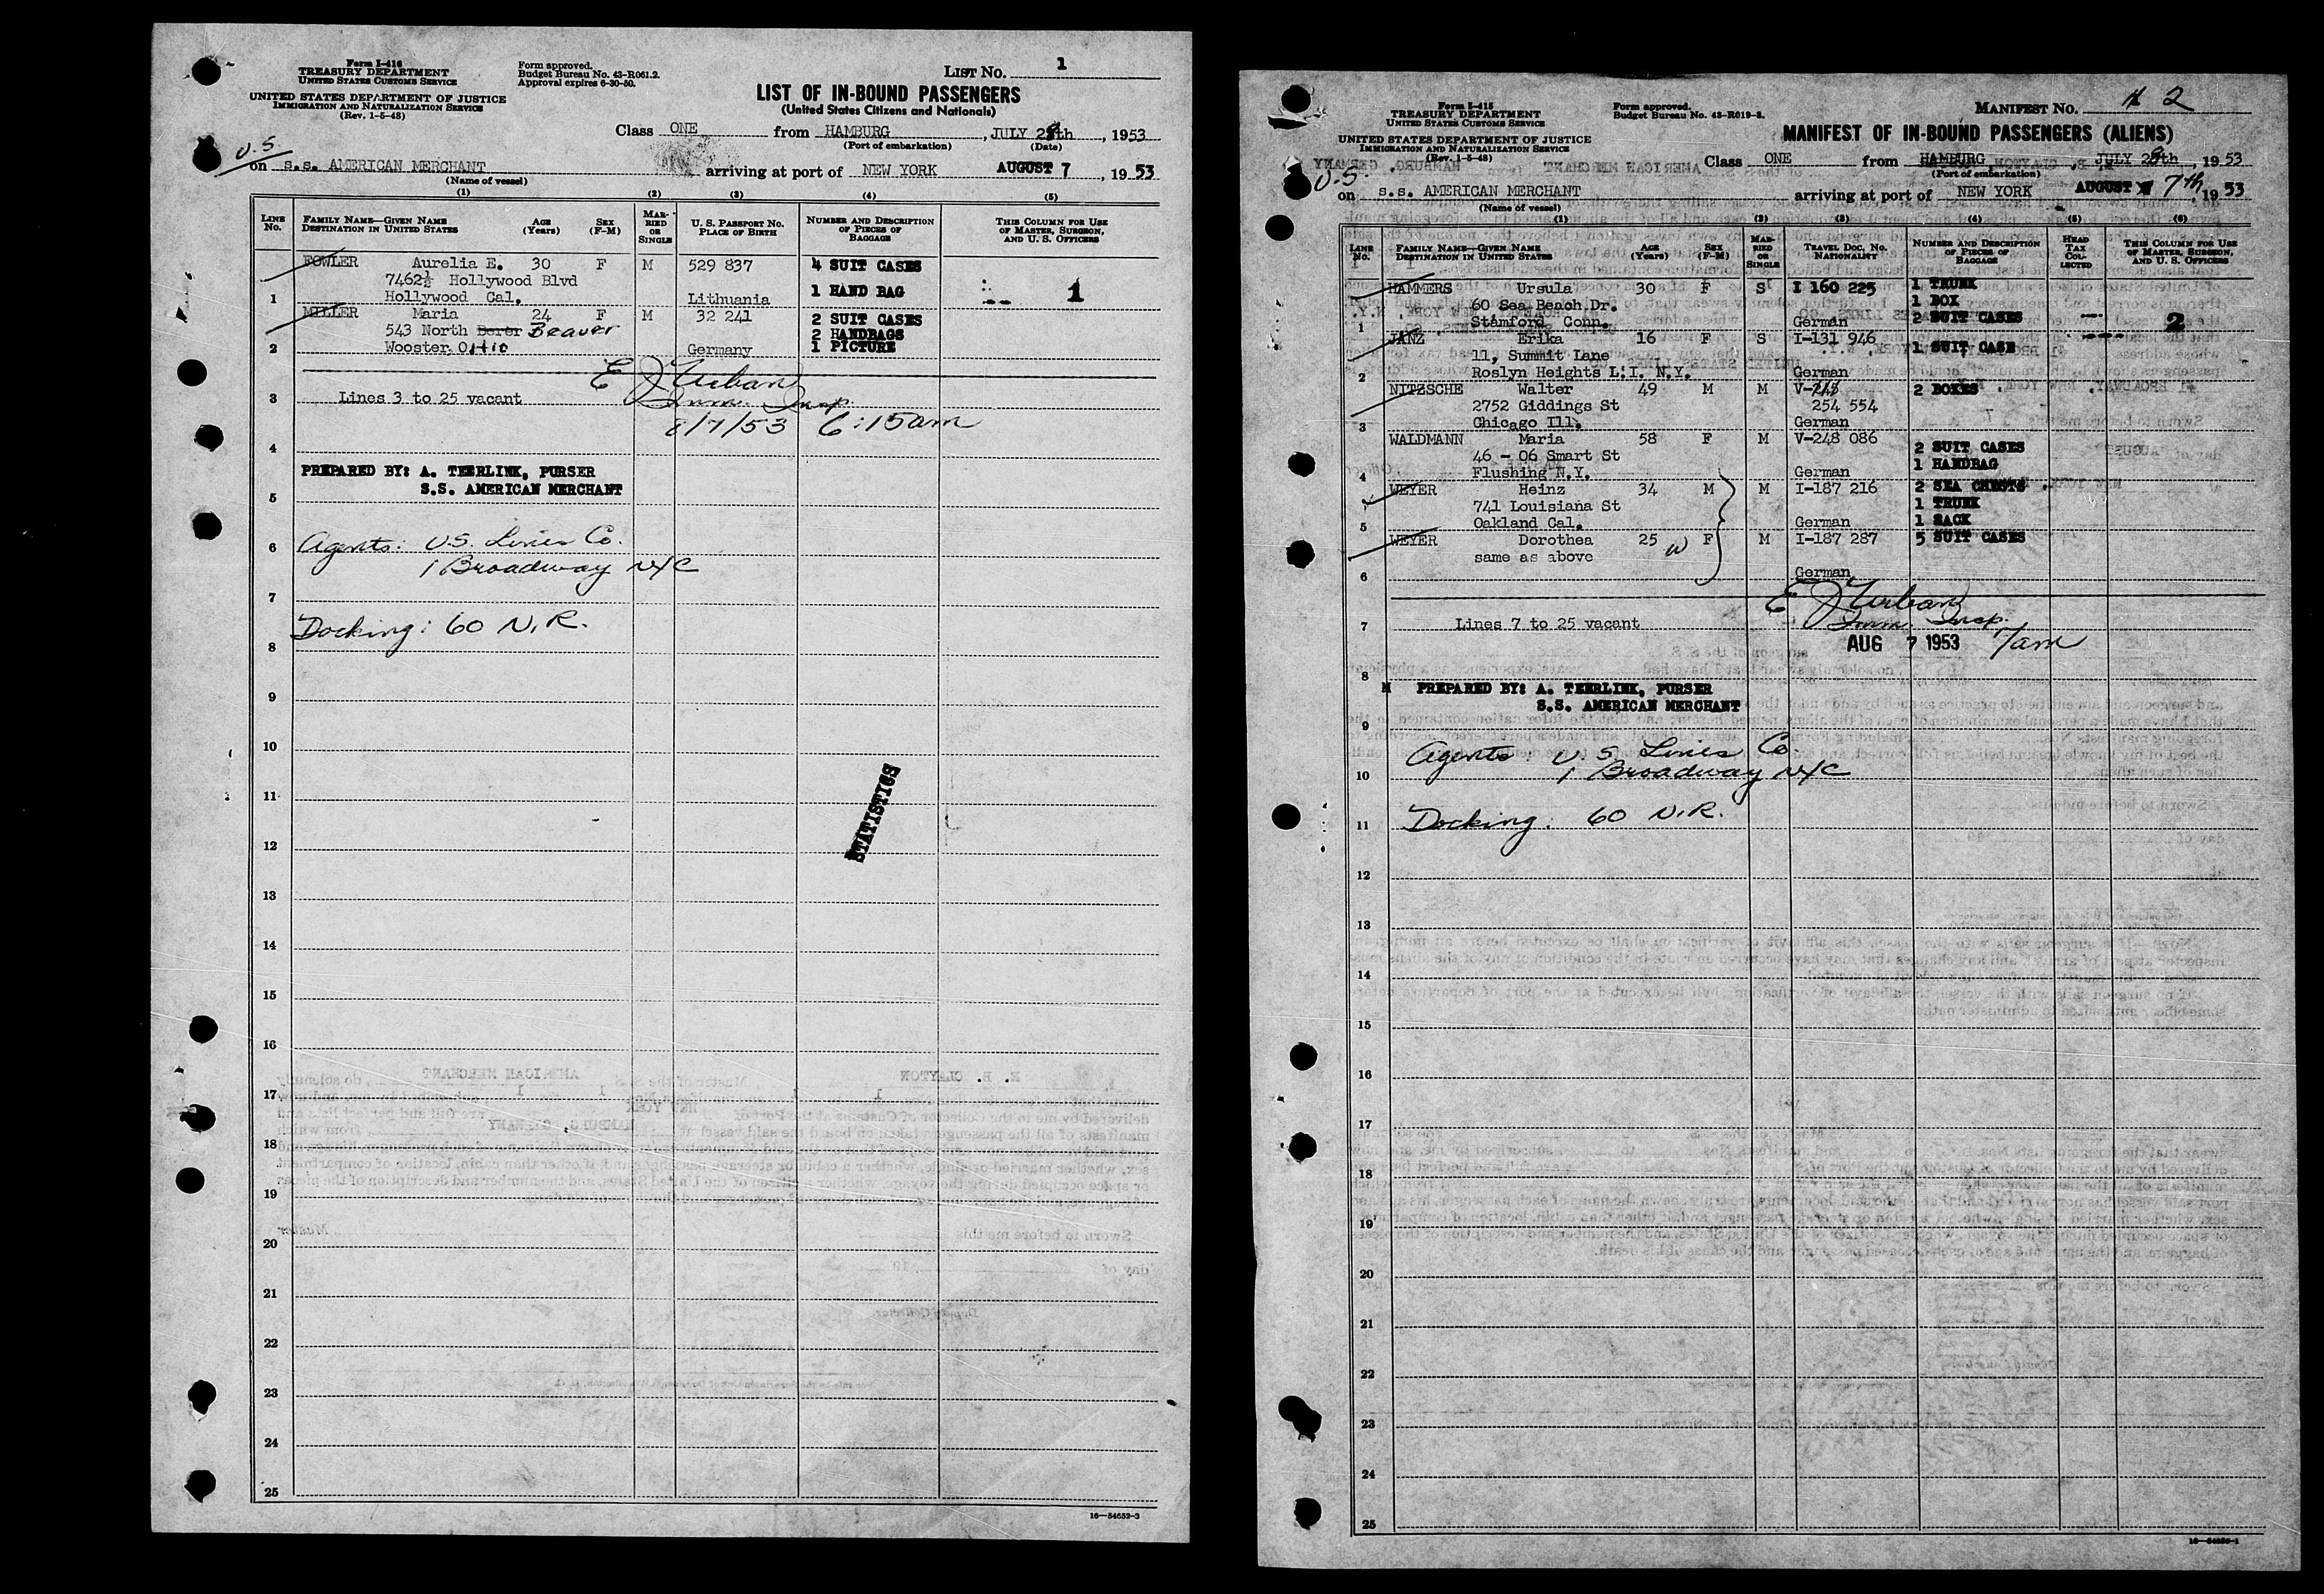 Form I-416
TREASURY DEPARTMENT
UNITED STATES CUSTOMS SERVICE
UNITED STATES DEPARTMENT OF JUSTICE
IMMIGRATION AND NATURALIZATION SERVICE
(Rev. 1-5-48)
Form approved.
Budget Bureau No. 43-R061.2.
Approval expires 6-30-50.
LIST No. 1
LIST OF IN-BOUND PASSENGERS
(United States Citizens and Nationals)
Class ONE from HAMBURG, JULY 28th, 1953
(Port of embarkation) (Date)
U.S.
on s.s. AMERICAN MERCHANT arriving at port of NEW YORK AUGUST 7, 1953
(Name of vessel)
(1) (2) (3) (4) (5)
LINE No. FAMILY NAME—GIVEN NAME DESTINATION IN UNITED STATES AGE (Years) SEX (F-M) MARRIED OR SINGLE U. S. PASSPORT No. PLACE OF BIRTH NUMBER AND DESCRIPTION OF PIECES OF BAGGAGE THIS COLUMN FOR USE OF MASTER, SURGEON, AND U. S. OFFICERS
FOWLER Aurelia E. 30 F M 529 837 4 SUIT CASES
7462½ Hollywood Blvd 1 HAND BAG 1
1 Hollywood Cal. Lithuania
MILLER Maria 24 F M 32 241 2 SUIT CASES
543 North Beaver 2 HANDBAGS
2 Wooster Ohio Germany 1 PICTURE
E J Urban
3 Lines 3 to 25 vacant Imm. Insp.
8/7/53 6:15am
4
PREPARED BY: A. TEERLINK, PURSER
S.S. AMERICAN MERCHANT
5
6 Agents: U.S. Lines Co.
1 Broadway NYC
7
Docking: 60 N.R.
8
9
10
11
STATISTICS
12
13
14
15
16
17
18
19
20
21
22
23
24
25
16—54652-3
Form I-415
TREASURY DEPARTMENT
UNITED STATES CUSTOMS SERVICE
UNITED STATES DEPARTMENT OF JUSTICE
IMMIGRATION AND NATURALIZATION SERVICE
(Rev. 1-5-48)
Form approved.
Budget Bureau No. 43-R019-3.
MANIFEST No. 2
MANIFEST OF IN-BOUND PASSENGERS (ALIENS)
Class ONE from HAMBURG, JULY 28th, 1953
(Port of embarkation) (Date)
U.S.
on s.s. AMERICAN MERCHANT arriving at port of NEW YORK AUGUST 7th, 1953
(Name of vessel)
(1) (2) (3) (4) (5) (6)
LINE No. FAMILY NAME—GIVEN NAME DESTINATION IN UNITED STATES AGE (Years) SEX (F-M) MARRIED OR SINGLE TRAVEL DOC. No. NATIONALITY NUMBER AND DESCRIPTION OF PIECES OF BAGGAGE HEAD TAX COLLECTED THIS COLUMN FOR USE OF MASTER, SURGEON, AND U. S. OFFICERS
HAMMERS Ursula 30 F S I 160 225 1 TRUNK
60 Sea Beach Dr. 1 BOX
1 Stamford Conn. German 2 SUIT CASES 2
JANZ Erika 16 F S I-131 946
11, Summit Lane 1 SUIT CASE
2 Roslyn Heights L.I. N.Y. German
NITZSCHE Walter 49 M M V- 2 BOXES
2752 Giddings St 254 554
3 Chicago Ill. German
WALDMANN Maria 58 F M V-248 086
46 - 06 Smart St 2 SUIT CASES
4 Flushing N.Y. German 1 HANDBAG
WEYER Heinz 34 M M I-187 216 2 SEA CHESTS
741 Louisiana St 1 TRUNK
5 Oakland Cal. German 1 SACK
WEYER Dorothea 25 W F M I-187 287 5 SUIT CASES
same as above
6 German
E J Urban
7 Lines 7 to 25 vacant Imm. Insp.
AUG 7 1953 7am
8
PREPARED BY: A. TEERLINK, PURSER
S.S. AMERICAN MERCHANT
9
Agents: U.S. Lines Co.
10 1 Broadway NYC
11 Docking: 60 N.R.
12
13
14
15
16
17
18
19
20
21
22
23
24
25